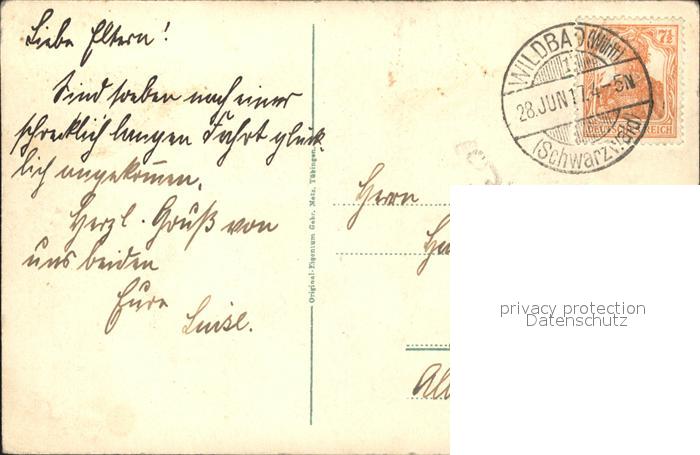 Liebe Eltern!
Sind soeben nach einer
schrecklich langen Fahrt glück-
lich angekommen.
Herzl. Gruß von
uns beiden
Eure
Luise.
Original-Eigentum Gebr. Metz, Tübingen.
WILDBAD (Württ)
28.JUN 17.4-5N
(Schwarzwald)
7½
DEUTSCHES REICH
Herrn
privacy protection
Datenschutz